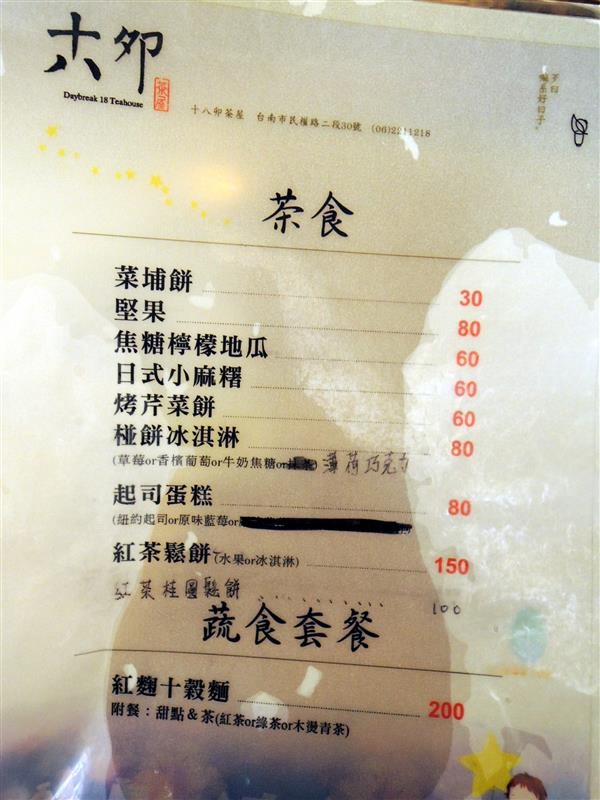 十八卯
茶屋
Daybreak 18 Teahouse
十八卯茶屋 台南市民權路二段30號 (06)2211218
茶食
菜埔餅 30
堅果 80
焦糖檸檬地瓜 60
日式小麻糬 60
烤芹菜餅 60
椪餅冰淇淋 80
(草莓or香檳葡萄or牛奶焦糖or 薄荷巧克力
起司蛋糕 80
(紐約起司or原味藍莓or
紅茶鬆餅(水果or冰淇淋) 150
紅茶桂圓鬆餅 100
蔬食套餐
紅麴十穀麵 200
附餐：甜點＆茶(紅茶or綠茶or木燙青茶)